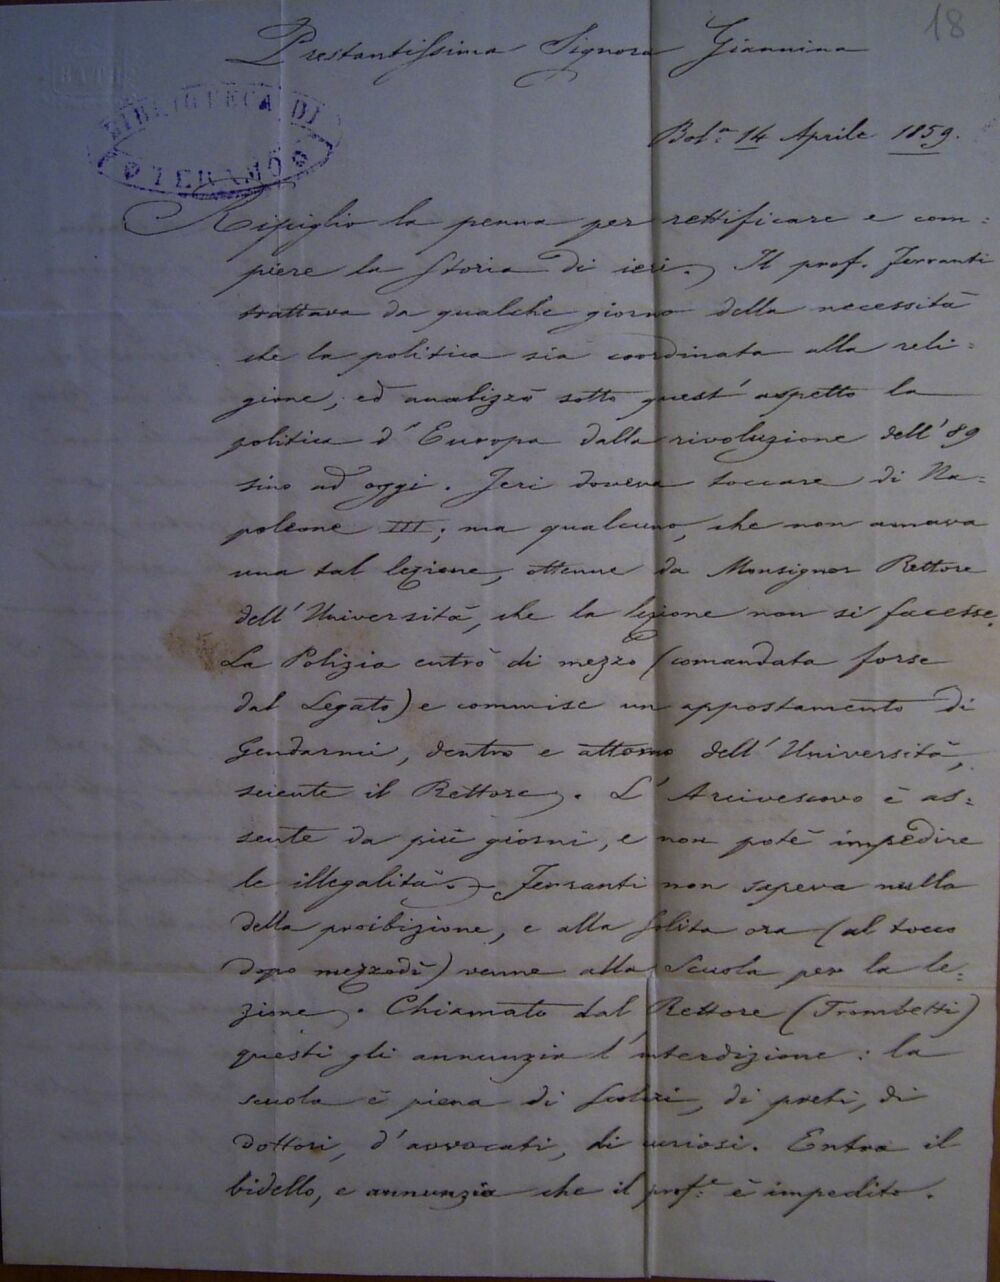 18
Prestantissima Signora Giannina
BATH
BIBLIOTECA DI
TERAMO
Bol.ª 14 Aprile 1859.
Ripiglio la penna per rettificare e com-
piere la storia di ieri. Il prof. Ferranti
trattava da qualche giorno della necessità
che la politica sia coordinata alla reli-
gione; ed analizzò sotto quest' aspetto la
politica d' Europa dalla rivoluzione dell' 89
sino ad oggi. Jeri doveva toccare di Na-
poleone III; ma qualcuno, che non amava
una tal lezione, ottenne da Monsignor Rettore
dell' Università, che la lezione non si facesse.
La Polizia entrò di mezzo (comandata forse
dal Legato) e commise un appostamento di
Gendarmi, dentro e attorno dell' Università,
sciente il Rettore. L' Arcivescovo è as-
sente da più giorni, e non potè impedire
le illegalità. Ferranti non sapeva nulla
della proibizione, e alla solita ora (al tocco
dopo mezzodì) venne alla scuola per la le-
zione. Chiamato dal Rettore (Trombetti)
questi gli annunzia l' interdizione: la
scuola è piena di scolari, di preti, di
dottori, d' avvocati, di curiosi. Entra il
bidello, e annunzia che il prof.e è impedito.